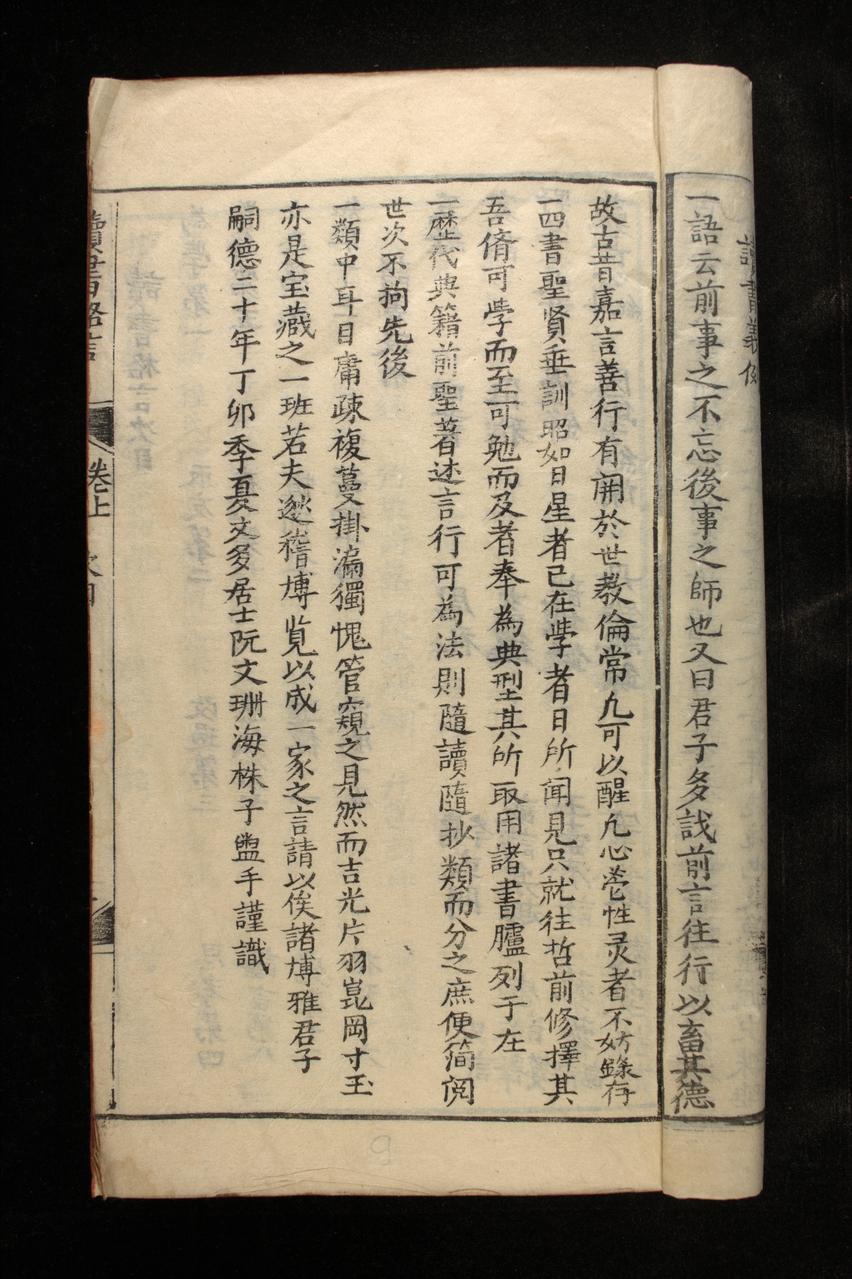 讀書義例
一語云前事之不忘後事之師也又曰君子多識前言往行以畜其德
故古昔嘉言善行有関於世教倫常凡可以醒凡心瀅性灵者不妨錄存
一四書聖賢垂訓昭如日星者已在學者日所聞見只就往哲前修擇其
吾儕可學而至可勉而及者奉為典型其所取用諸書臚列于左
一歷代典籍前聖著述言行可為法則隨讀隨抄類而分之庶便簡閲
世次不拘先後
一類中耳目庸疎複蔓掛漏獨愧管窺之見然而吉光片羽崑岡寸玉
亦是宝蔵之一班若夫邃稽博覧以成一家之言請以俟諸博雅君子
嗣德二十年丁卯季夏文多居士阮文珊海株子盥手謹識
讀書格言
卷上
次目